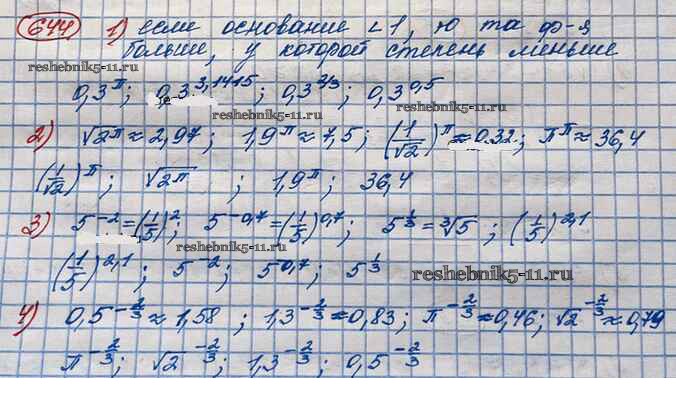 644 1) если основание < 1, то та ф-я
больше, у которой степень меньше
reshebnik5-11.ru
0,3^π ; 0,3^3,1415 ; 0,3^2/3 ; 0,3^0,5
reshebnik5-11.ru
2) √2^π ≈ 2,97 ; 1,9^π ≈ 7,5 ; (1/√2)^π ≈ 0,32 ; π^π ≈ 36,4
(1/√2)^π ; √2^π ; 1,9^π ; 36,4
3) 5^-2 = (1/5)^2 ; 5^-0,7 = (1/5)^0,7 ; 5^1/3 = ³√5 ; (1/5)^2,1
reshebnik5-11.ru
(1/5)^2,1 ; 5^-2 ; 5^0,7 ; 5^1/3
reshebnik5-11.ru
4) 0,5^-2/3 ≈ 1,58 ; 1,3^-2/3 ≈ 0,83 ; π^-2/3 ≈ 0,46 ; √2^-2/3 ≈ 0,79
π^-2/3 ; √2^-2/3 ; 1,3^-2/3 ; 0,5^-2/3
reshebnik5-11.ru